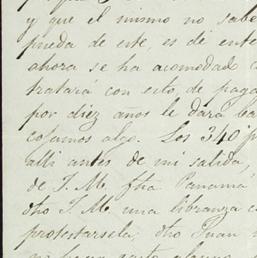 y que el mismo no sabe
pueda de este, es de ente
ahora se ha acomodado c
tratará con esto, de paga
por diez años le dará ba
cojamos algo. Los 340 p
alli antes de mi salida,
de J. M. fha Panamá
dho J. M. una libranza c
protestarsela; dho Juan